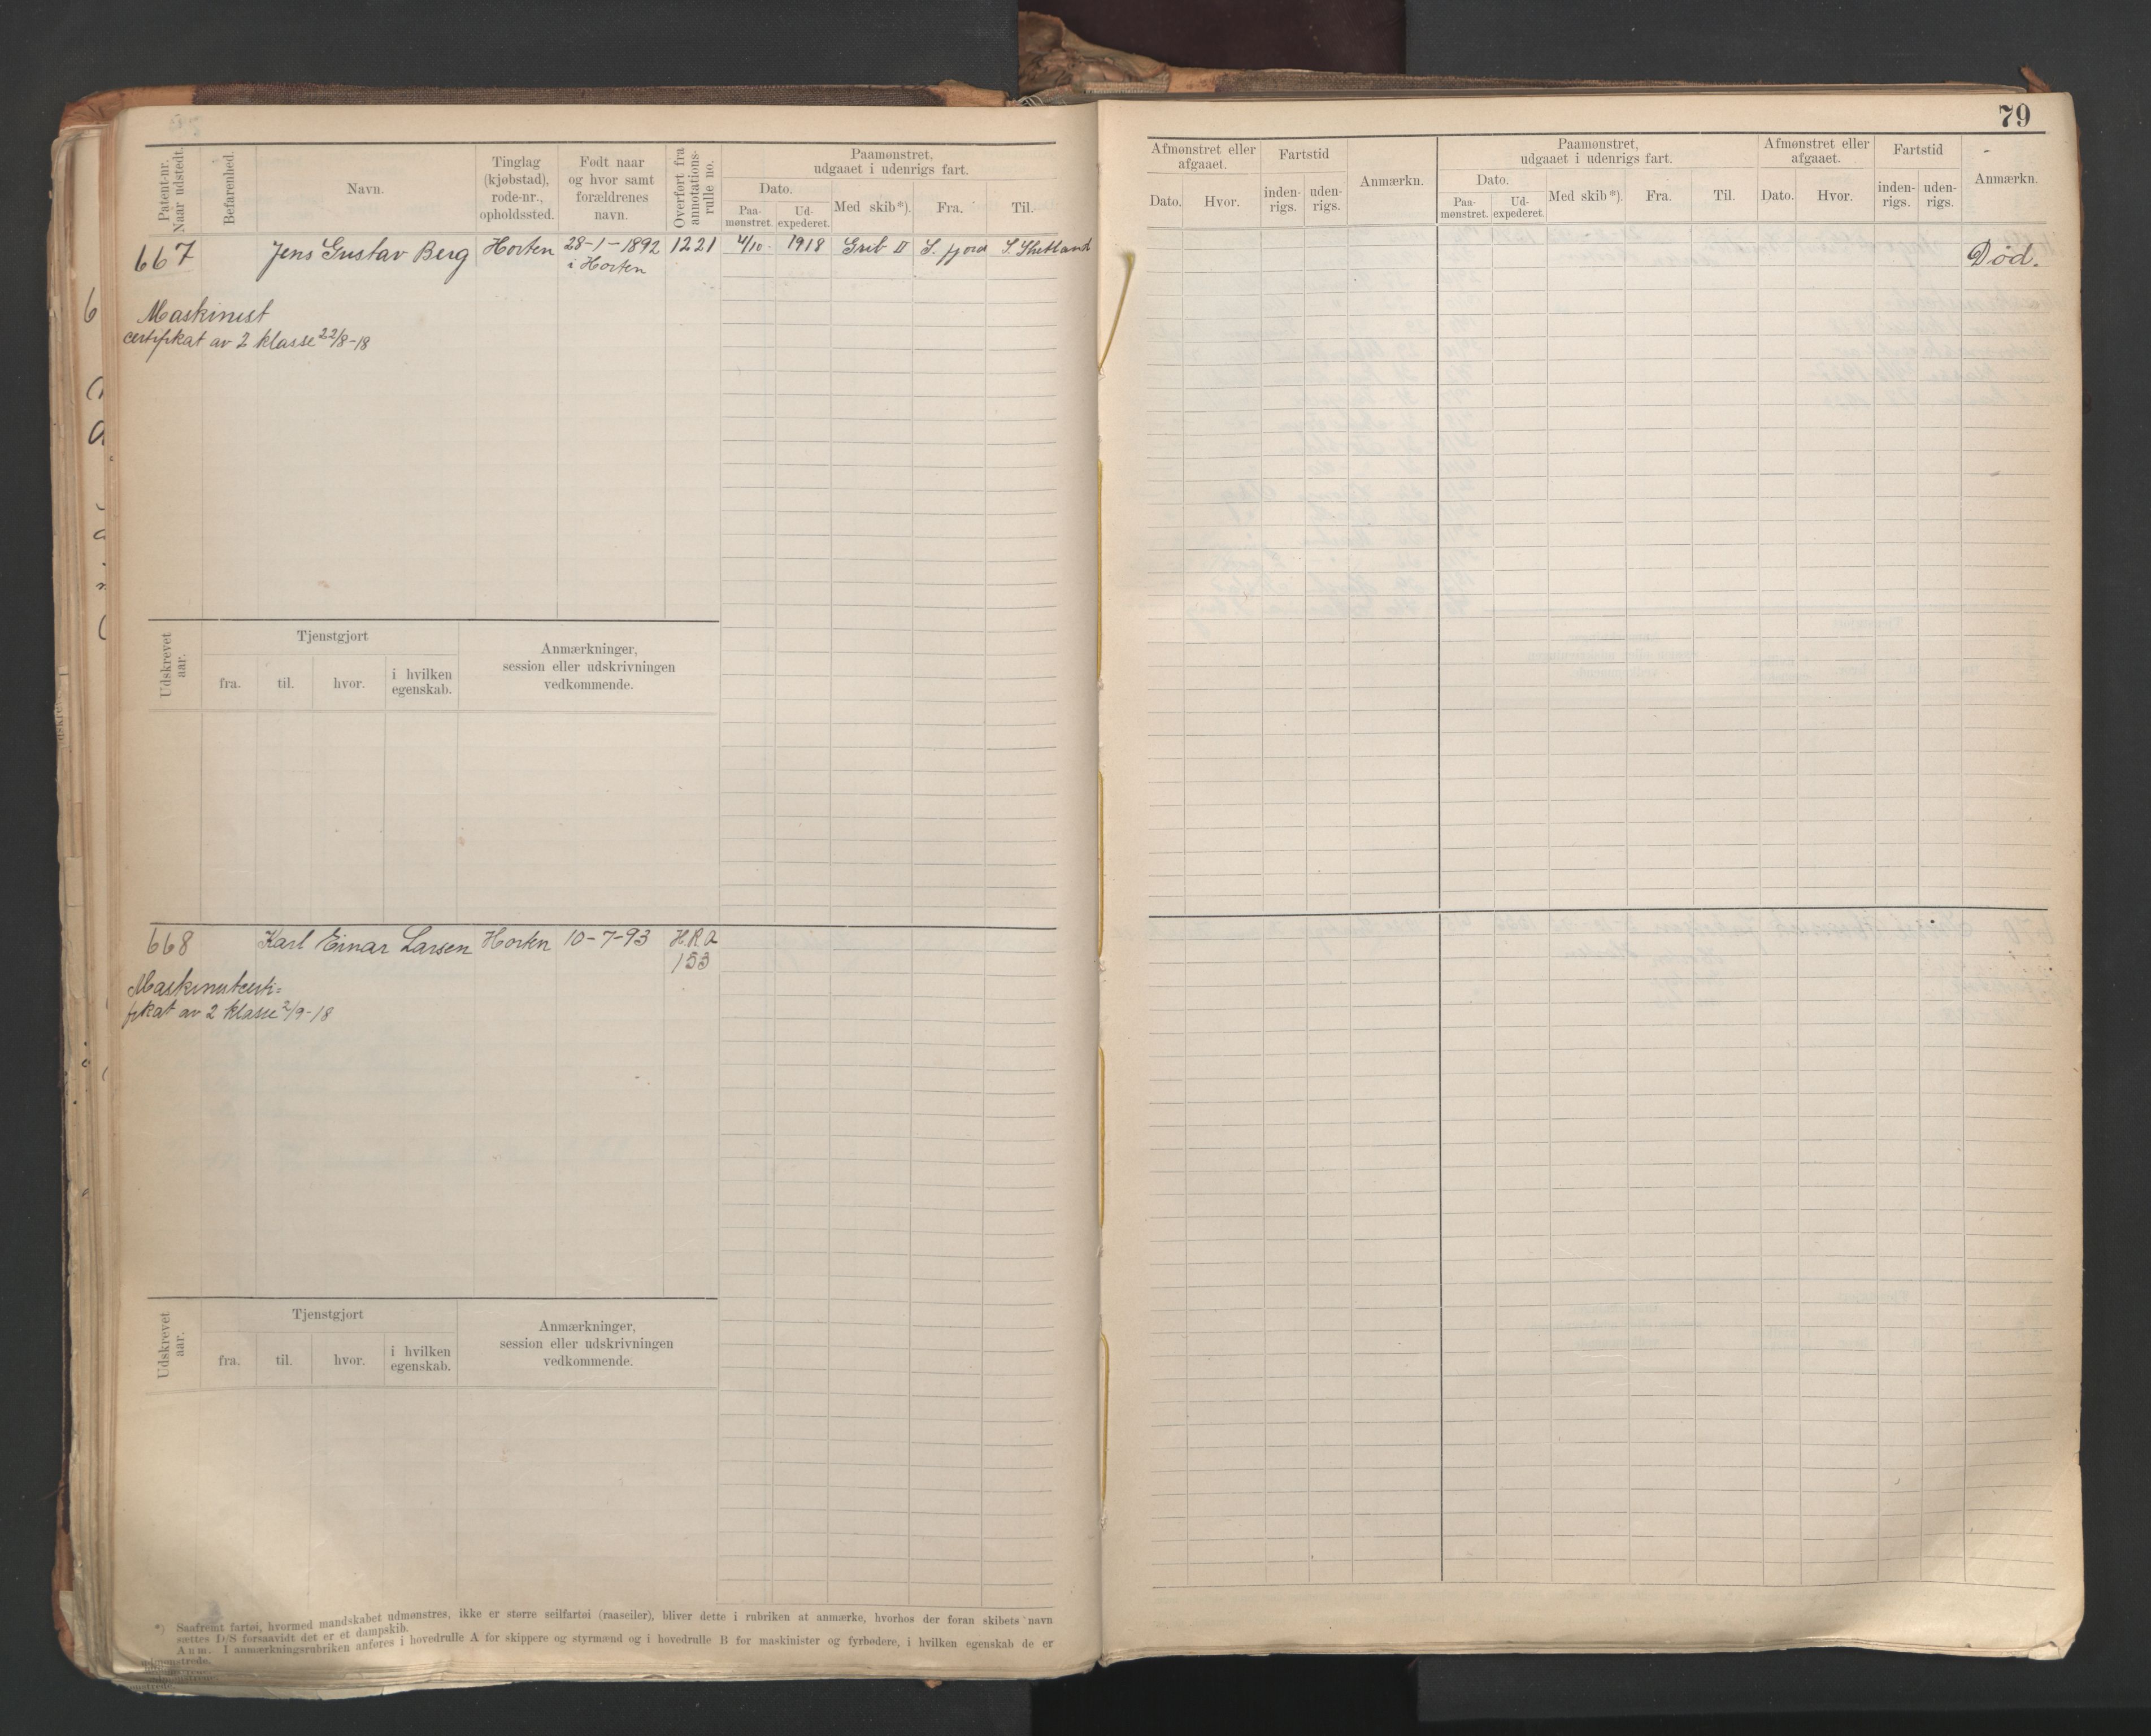 79
Patent-nr. Naar udstedt.
Befarenhed.
Navn.
Tinglag (kjøbstad), rode-nr., opholdssted.
Født naar og hvor samt forældrenes navn.
Overført fra annotations-rulle no.
Paamønstret, udgaaet i udenrigs fart.
Dato.
Paa-mønstret.
Ud-expederet.
Med skib*).
Fra.
Til.
Afmønstret eller afgaaet.
Dato.
Hvor.
Fartstid
inden-rigs.
uden-rigs.
Anmærkn.
Paamønstret, udgaaet i udenrigs fart.
Dato.
Paa-mønstret.
Ud-expederet.
Med skib*).
Fra.
Til.
Afmønstret eller afgaaet.
Dato.
Hvor.
Fartstid
inden-rigs.
uden-rigs.
Anmærkn.
667 Jens Gustav Berg Horten 28-1-1892 1221 4/10 1918 Grib II S. fjord S. Shetland Død.
i Horten
Maskinist
certifikat av 2 klasse 22/8-18
Udskrevet aar.
Tjenstgjort
fra.
til.
hvor.
i hvilken egenskab.
Anmærkninger,
session eller udskrivningen
vedkommende.
668 Karl Einar Larsen Horten 10-7-93 H.R.A
153
Maskinistcerti=
fikat av 2 klasse 2/9-18
Udskrevet aar.
Tjenstgjort
fra.
til.
hvor.
i hvilken egenskab.
Anmærkninger,
session eller udskrivningen
vedkommende.
*) Saafremt fartøi, hvormed mandskabet udmønstres, ikke er større seilfartøi (raaseiler), bliver dette i rubriken at anmærke, hvorhos der foran skibets navn
sættes D/S forsaavidt det er et dampskib.
Anm. I anmærkningsrubriken anføres i hovedrulle A for skippere og styrmænd og i hovedrulle B for maskinister og fyrbødere, i hvilken egenskab de er
udmønstrede.